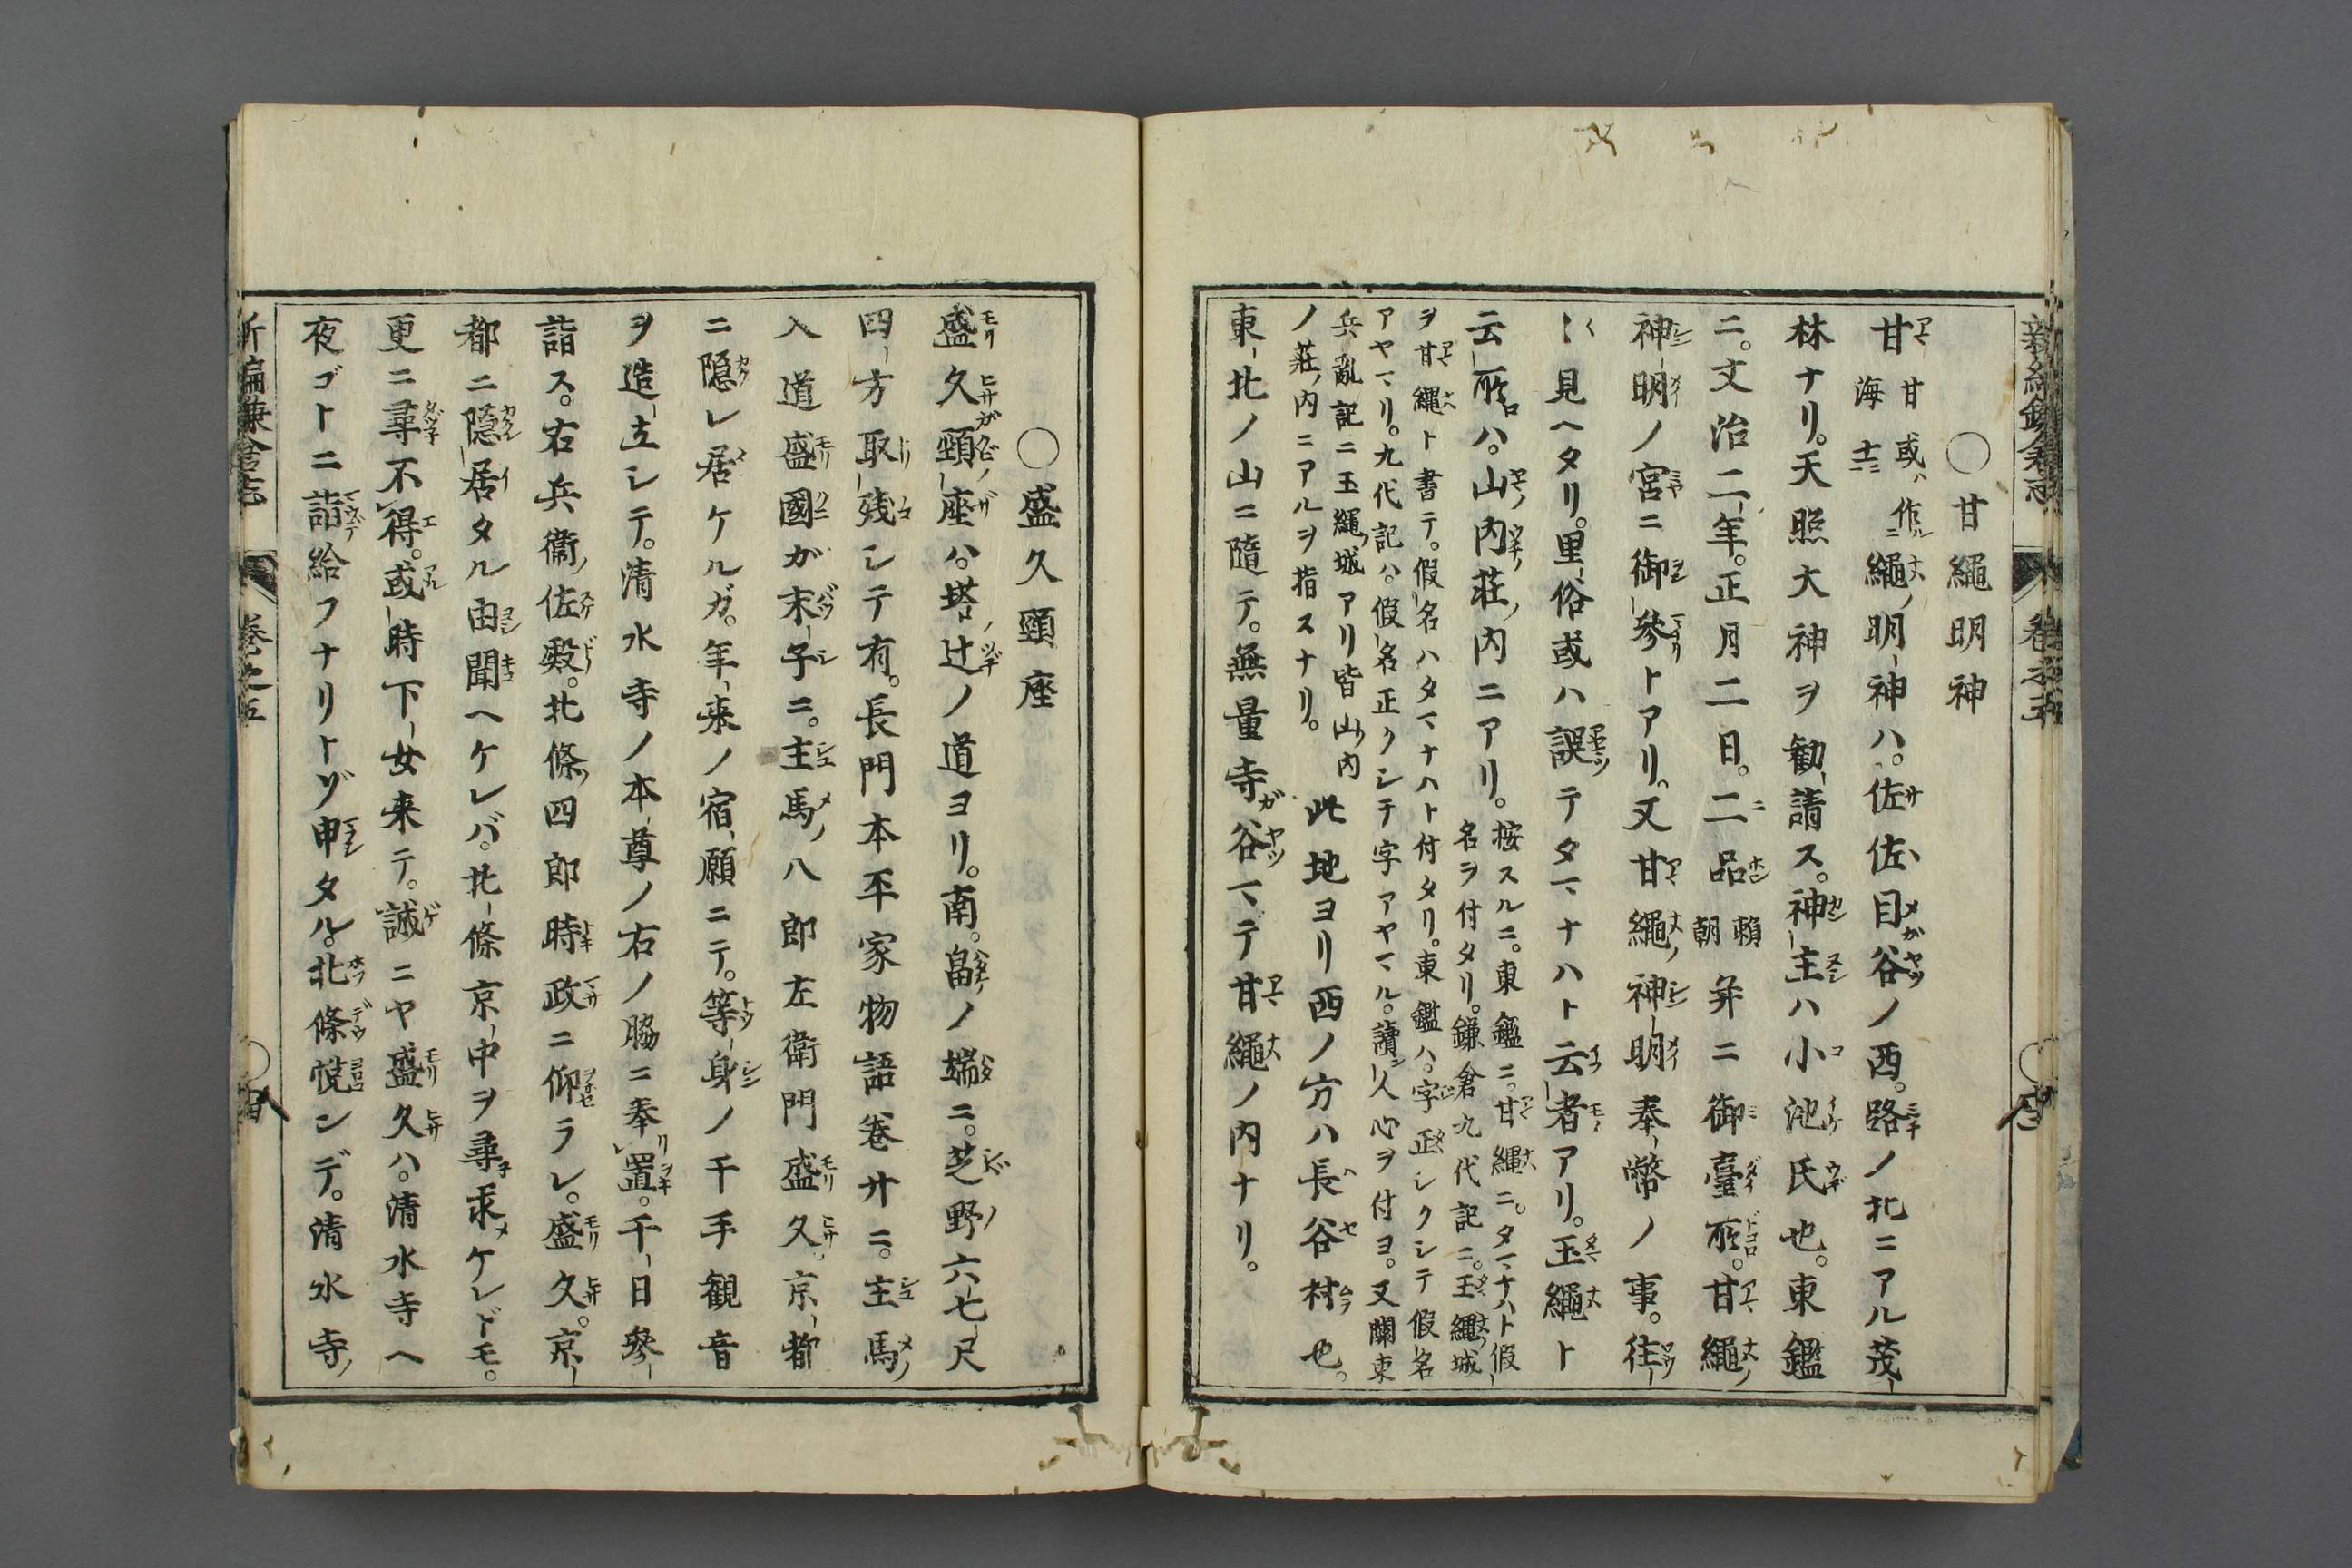 ○甘繩明神
甘甘或ハ作海士ニ繩ノ明神ハ。佐佐目谷ノ西。路ノ北ニアル茂
林ナリ。天照大神ヲ勸請ス。神主ハ小池氏也。東鑑
ニ。文治二年。正月二日。二品賴朝并ニ御臺所。甘繩ノ
神明ノ宮ニ御參トアリ。又甘繩ノ神明奉幣ノ事。往
〱見ヘタリ。里俗或ハ誤テタマナハト云者アリ。玉繩ト
云所ハ。山ノ内ノ莊ノ内ニアリ。按スルニ。東鑑ニ。甘繩ニ。タマナハト假
名ヲ付タリ。鎌倉九代記ニ。玉繩ノ城
ヲ甘繩ト書テ。假名ハタマナハト付タリ。東鑑ハ。字正シクシテ假名
アヤマリ。九代記ハ。假名正クシテ字アヤマル。讀ン人心ヲ付ヨ。又關東
兵亂記ニ玉繩ノ城アリ皆山ノ内
ノ莊ノ内ニアルヲ指スナリ。
此地ヨリ西ノ方ハ長谷村也。
東北ノ山ニ隨テ。無量寺谷マデ甘繩ノ内ナリ。
新編鎌倉志 卷之五
○盛久頸座
盛久頸座ハ。塔ノ辻ノ道ヨリ。南。畠ノ端ニ。芝野六七尺
四方取殘シテ有。長門本平家物語卷廿ニ。主馬ノ
入道盛國が末子ニ。主馬ノ八郎左衛門盛久ノ京都
ニ隠レ居ケルガ。年来ノ宿願ニテ。等身ノ千手観音
ヲ造立シテ。清水寺ノ本尊ノ右ノ脇ニ奉置。千日參
詣ス。右兵衞ノ佐殿。北條ノ四郎時政ニ仰ラレ。盛久。京
都ニ隠居タル由聞ヘケレバ。北條京中ヲ尋求ケレドモ。
更ニ尋不得。或時下女来テ。誠ニヤ盛久ハ。清水寺ヘ
夜ゴトニ詣給フナリトゾ申タル。北條悦ンデ。清水寺ノ
新編鎌倉志 卷之五